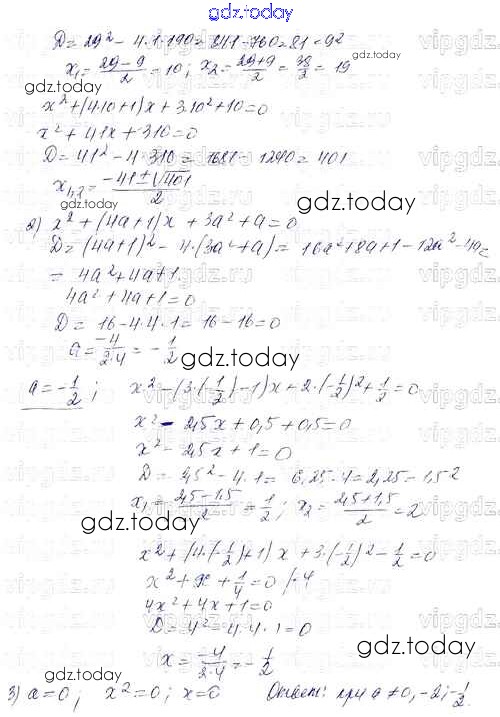 gdz.today
D = 29² - 4·1·190 = 841 - 760 = 81 = 9²
x₁ = (29-9)/2 = 10; x₂ = (29+9)/2 = 38/2 = 19
gdz.today
x² + (4·10+1)x + 3·10² + 10 = 0
x² + 41x + 310 = 0
D = 41² - 4·310 = 1681 - 1290 = 401
x₁,₂ = (-41±√401)/2
gdz.today
2) x² + (4a+1)x + 3a² + a = 0
D = (4a+1)² - 4·(3a²+a) = 16a²+8a+1-12a²-4a=
= 4a²+4a+1
4a²+4a+1=0
D = 16-4·4·1 = 16-16=0
a = -4/2·4 = -1/2
gdz.today
a = -1/2; x² - (3·(-1/2)-1)x + 2·(-1/2)² + 1/2 = 0
x² - 2,5x + 0,5 + 0,5 = 0
x² - 2,5x + 1 = 0
D = 2,5² - 4·1 = 6,25 - 4 = 2,25 = 1,5²
x₁ = (2,5-1,5)/2 = 1/2; x₂ = (2,5+1,5)/2 = 2
gdz.today
x² + (4·(-1/2)+1)x + 3·(-1/2)² - 1/2 = 0
x² + x + 1/4 = 0 /·4
4x² + 4x + 1 = 0
D = 4² - 4·4·1 = 0
gdz.today
x = -4/2·4 = -1/2
gdz.today
3) a=0; x²=0; x=0 Ответ: при a≠0, -2; -1/2.
gdz.today